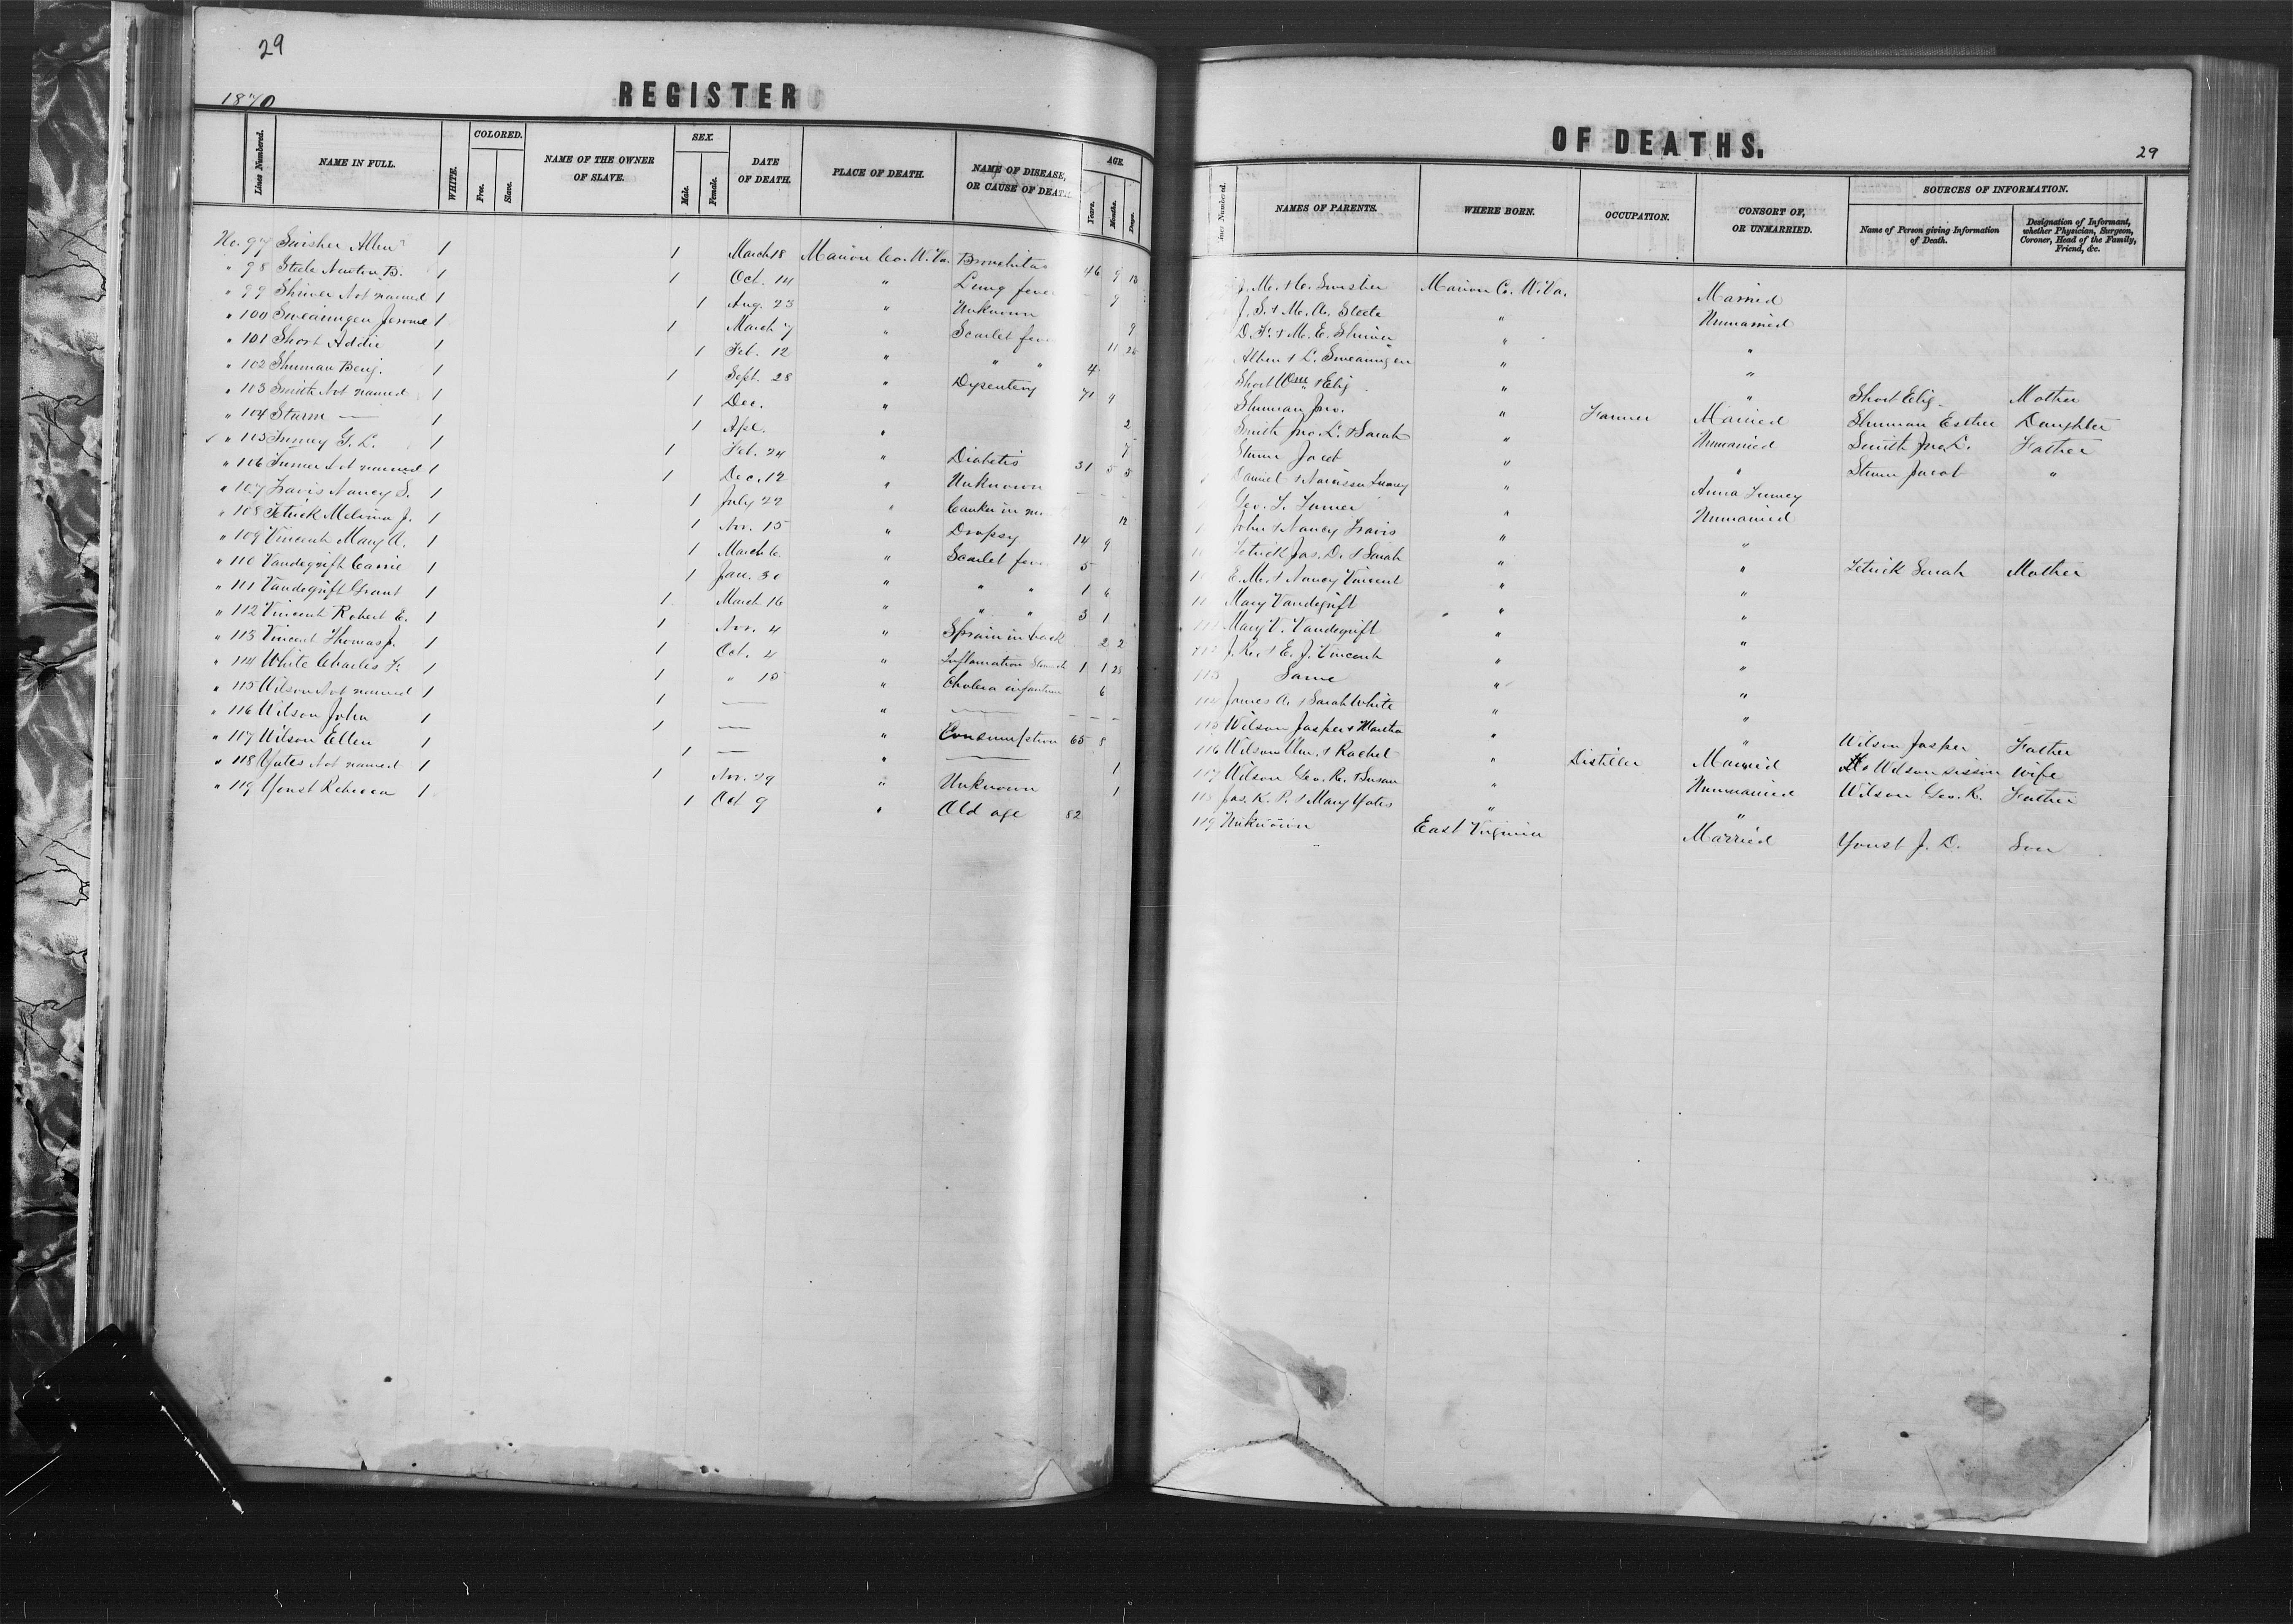 29
1870
REGISTER
Lines Numbered. NAME IN FULL. WHITE. COLORED. Free. Slave. NAME OF THE OWNER OF SLAVE. SEX. Male. Female. DATE OF DEATH. PLACE OF DEATH. NAME OF DISEASE, OR CAUSE OF DEATH. AGE. Years. Months. Days.
No. 97 Swisher Allen 1 1 March 18 Marion Co. W. Va. Bronchitas 46 9 13
" 98 Steele Newton B. 1 1 Oct. 14 " Lung feve
" 99 Shriver Not named 1 1 Aug. 23 " Unknown
" 100 Swearingen Jerome 1 1 March 7 " Scarlet feve
" 101 Short Addie 1 1 Feb. 12 " " "
" 102 Shuman Benj. 1 1 Sept. 28 " Dysentery 71 9
" 103 Smith Not named 1 1 Dec. " 2
" 104 Sturm — 1 1 Apl. " 7
" 105 G. L. 1 1 Feb. 24 " Diabetis 31 5 5
" 106 Turner Not named 1 1 Dec. 12 " Unknown — — —
" 107 Travis Nancy S. 1 1 July 22 " Canker in 12
" 108 Tetrick Melvina J. 1 1 Nov. 15 " Dropsy 14 9
" 109 Vincent Mary A. 1 1 March 6. " Scarlet feve 5
" 110 Vandegrift Carrie 1 1 Jan. 30 " " " 1 6
" 111 Vandegrift Grant 1 1 March 16 " " " 3 1
" 112 Vincent Robert E. 1 1 Nov. 4 " Sprain in back 2 2
" 113 Vincent Thomas J. 1 1 Oct. 4 " Inflamation 1 1 28
" 114 White Charles F. 1 1 " 15 " Cholera infantum 6
" 115 Wilson Not named 1 1 — " — — — —
" 116 Wilson John 1 1 — " Consumption 65 8
" 117 Wilson Ellen 1 1 — " — 1
" 118 Yates Not named 1 1 Nov. 29 " Unknown 1
" 119 Yonst Rebecca 1 1 Oct 9 " Old age 82
OF DEATHS.
29
Lines Numbered. NAMES OF PARENTS. WHERE BORN. OCCUPATION. CONSORT OF, OR UNMARRIED. SOURCES OF INFORMATION. Name of Person giving Information of Death. Designation of Informant, whether Physician, Surgeon, Coroner, Head of the Family, Friend, &c.
J. M. & C. Swisher Marion Co. W. Va. Married
J. S. & M. A. Steele " Unmarried
D. F. & M. E. Shriver " "
Allen & L. Swearingen " "
Short & Eliz. " " Short Eliz. Mother
Shuman Jno. " Farmer Married Shuman Esther Daughter
Smith Jno. L. & Sarah " Unmarried Smith Jno. L. Father
Sturm Jacob " " Sturm Jacob "
Daniel & Narcissa " Anna
Geo. L. Turner " Unmarried
John & Nancy Travis " "
Tetrick Jas. D. & Sarah " " Tetrick Sarah Mother
E. M. & Nancy Vincent " "
Mary Vandegrift " "
Mary V. Vandegrift " "
112 J. R. & E. J. Vincent " "
113 Same " "
114 James A. & Sarah White " "
115 Wilson Jasper & Martha " " Wilson Jasper Father
116 Wilson Wm. & Rachel " Distiller Married Wilson Wife
117 Wilson Geo. R. & Susan " Unmarried Wilson Geo. R. Father
118 Jas. K. P. & Mary Yates " "
119 Unknown East Virginia Married Yonst J. L. Son